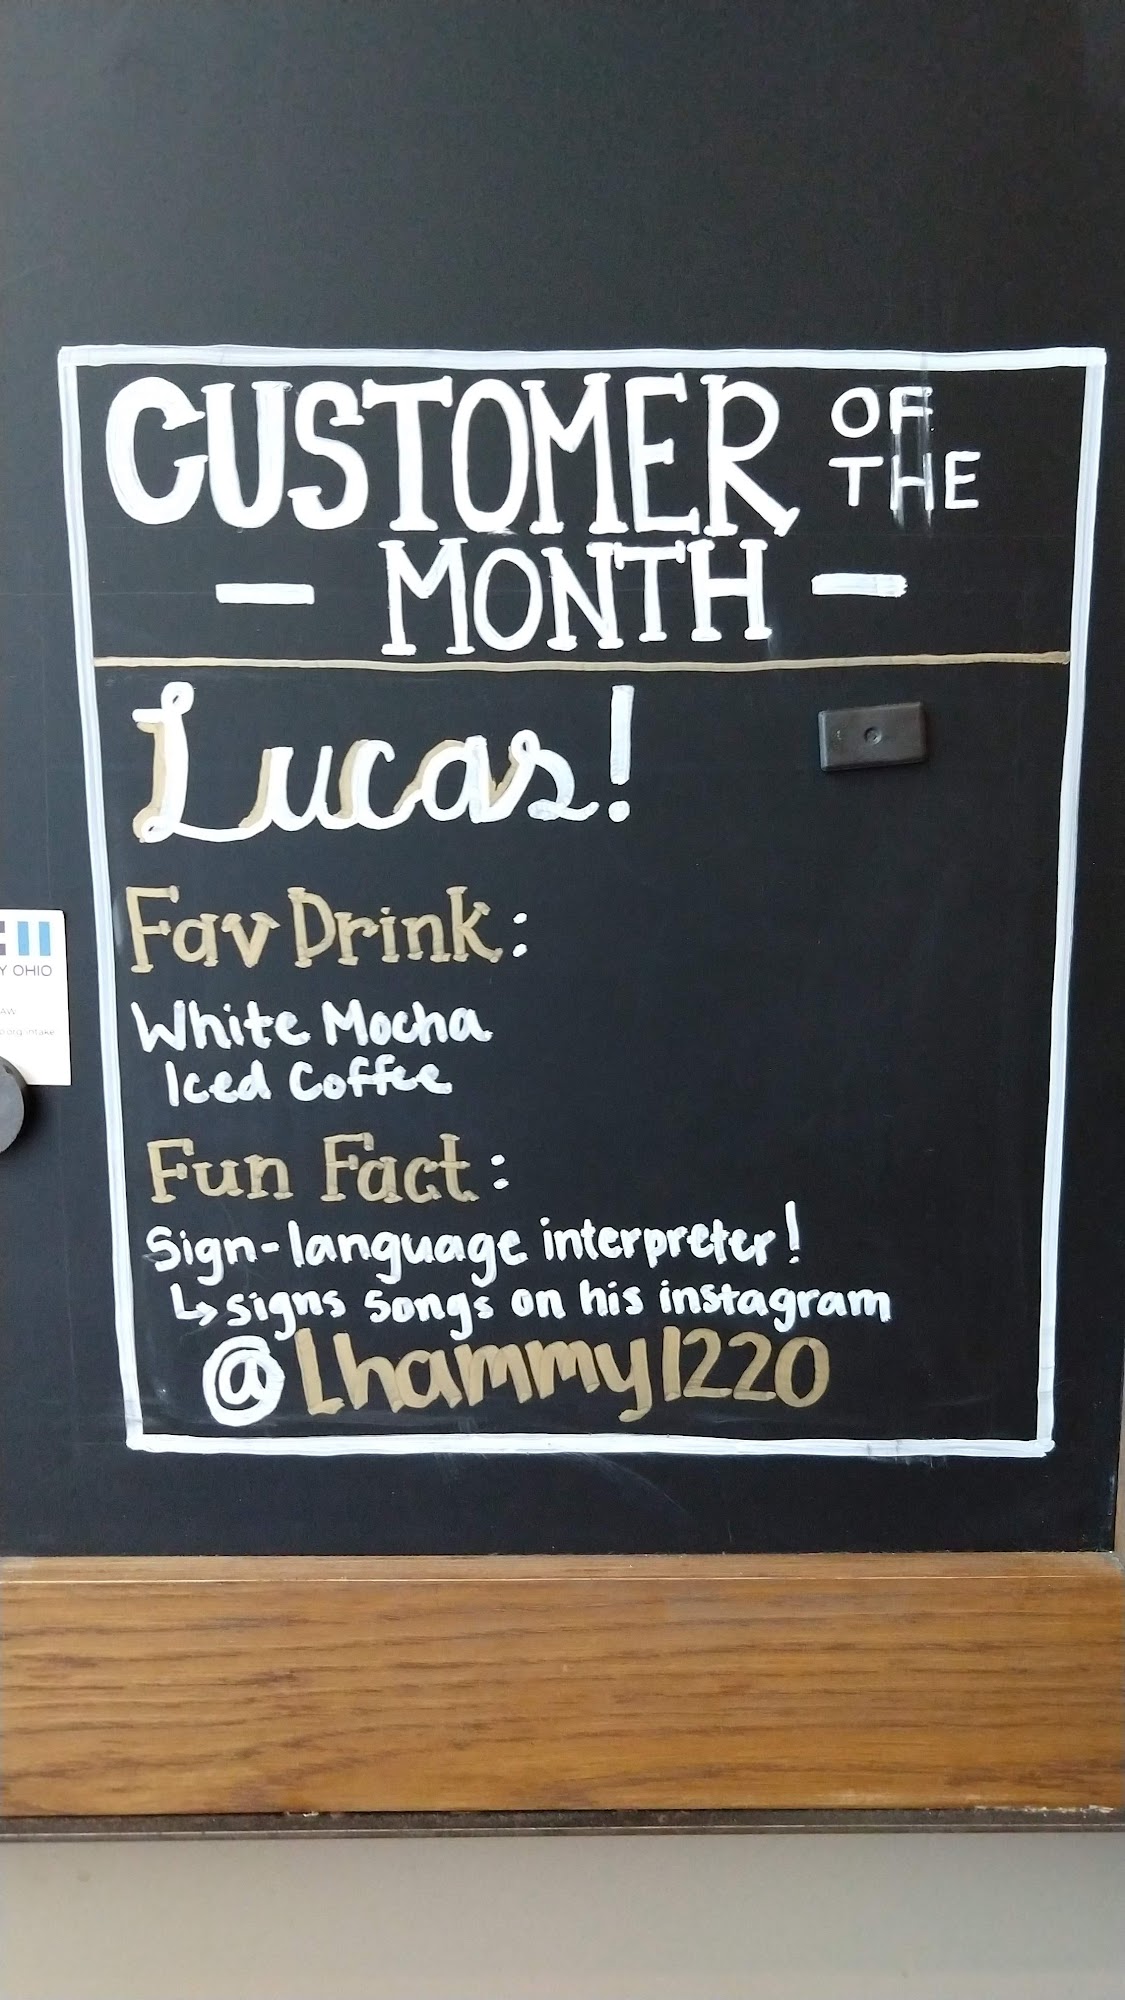 CUSTOMER OF
THE
— MONTH —
Lucas!
Fav Drink:
White Mocha
Iced Coffee
Fun Fact:
Sign-language interpreter!
↳ signs songs on his instagram
@Lhammy1220
Y OHIO
AW